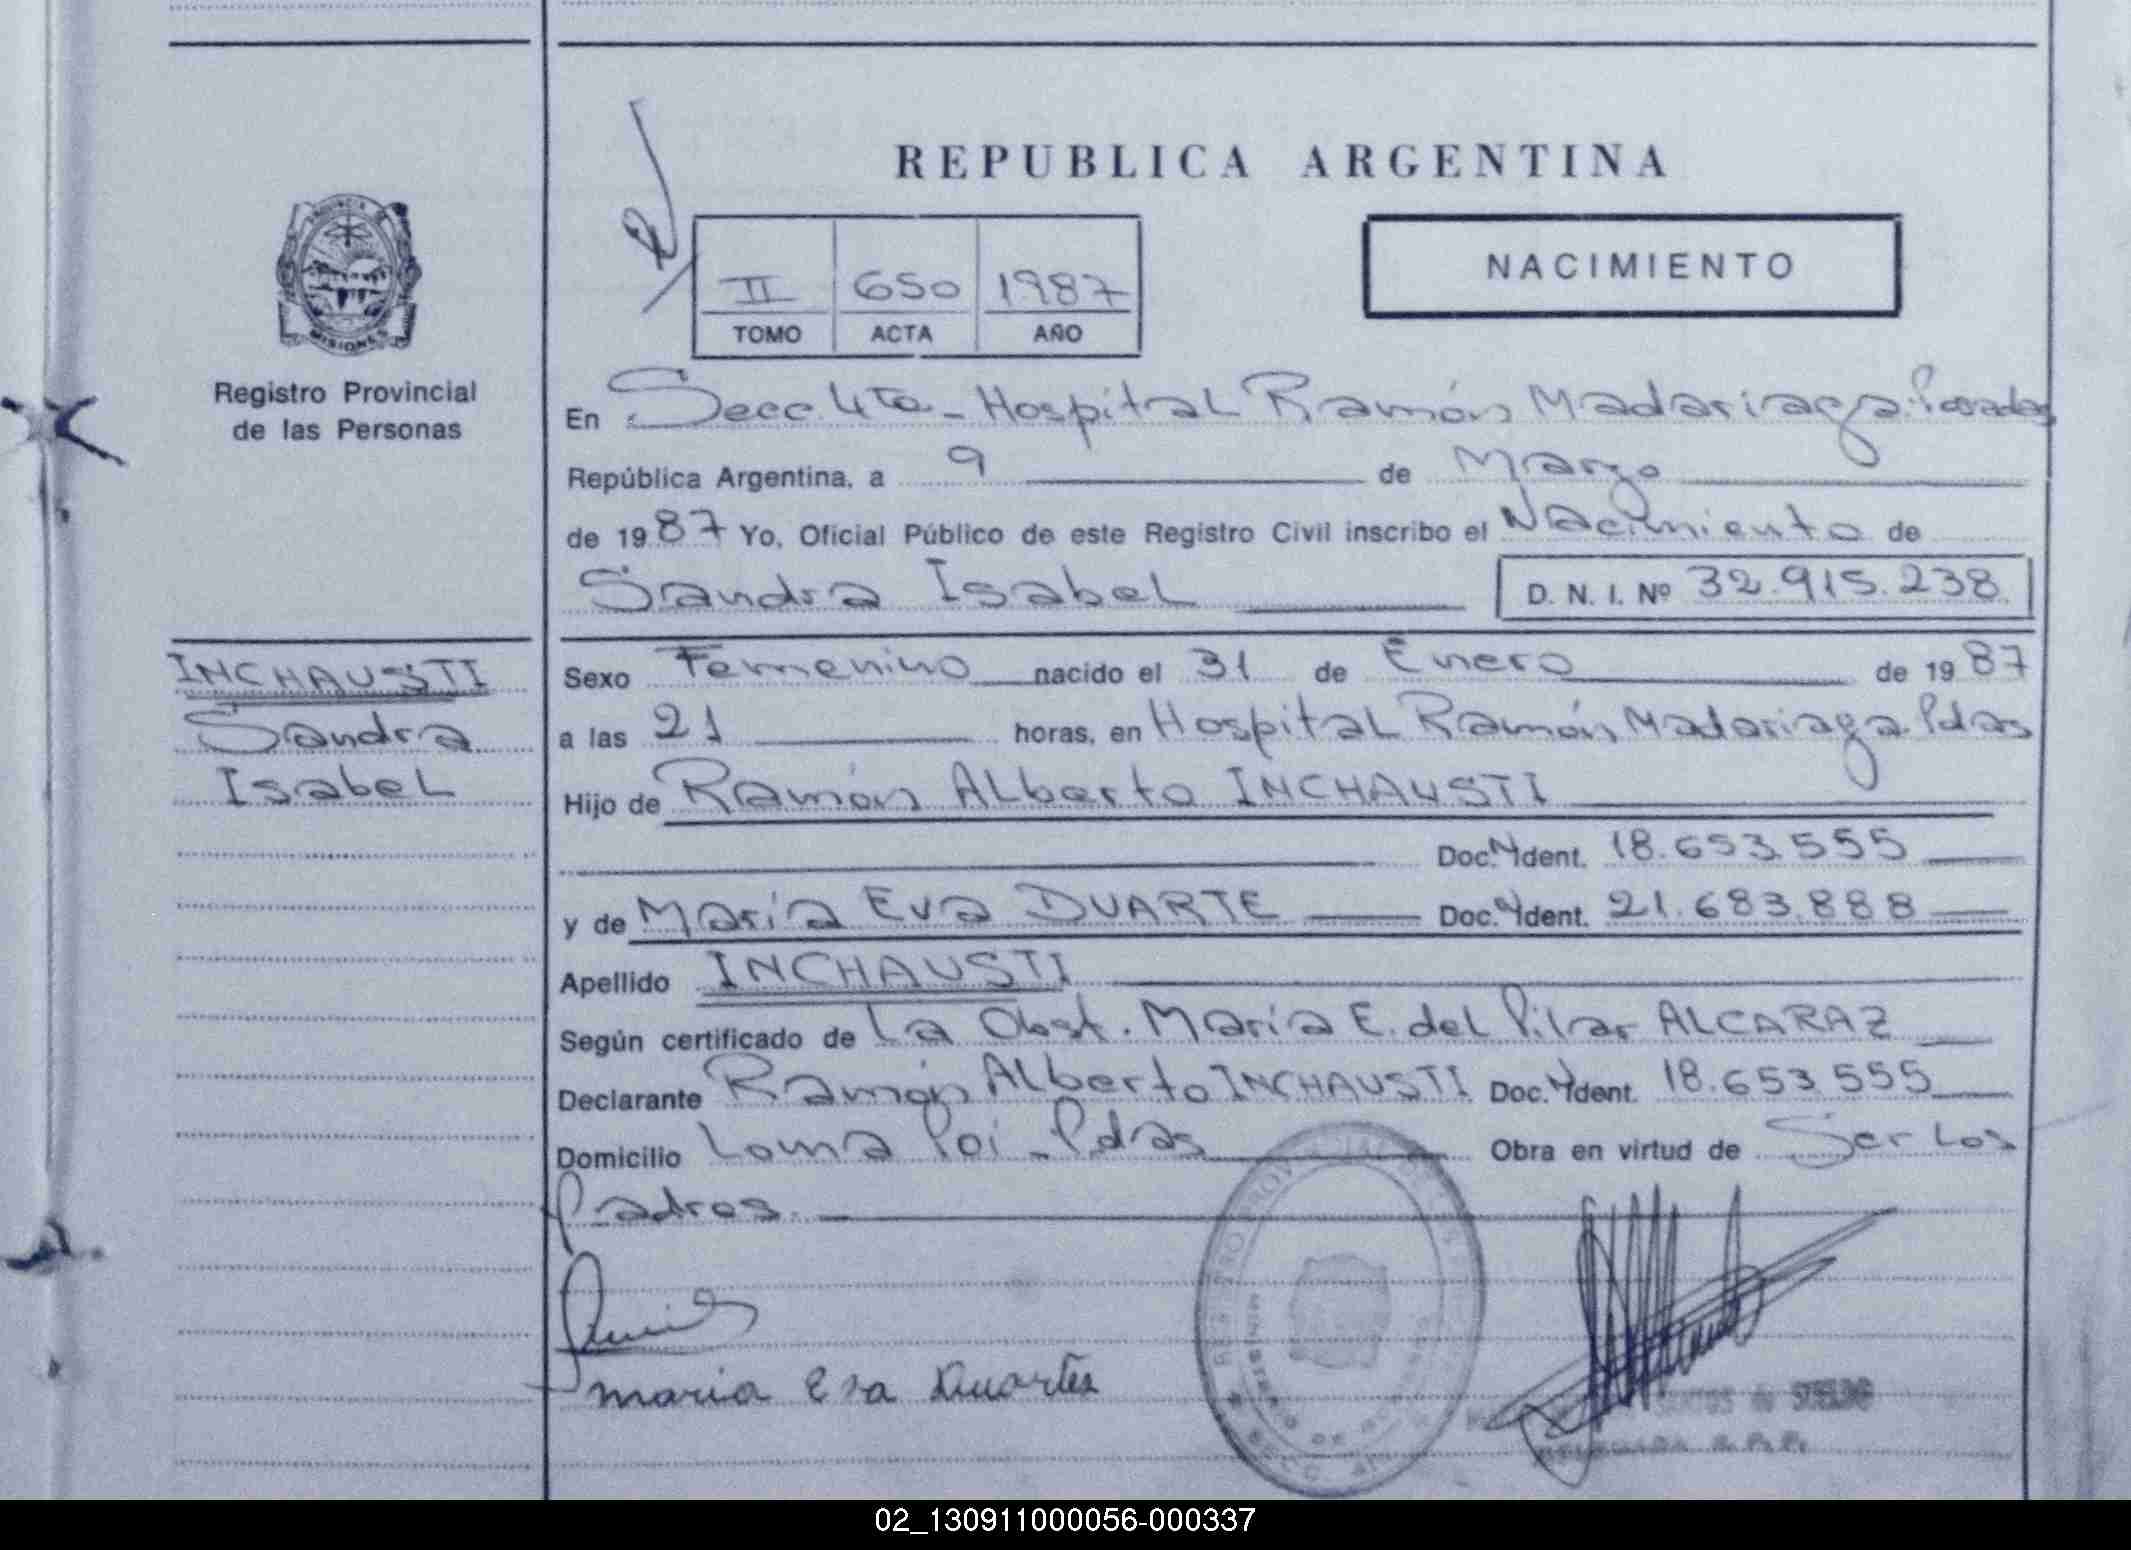 REPUBLICA ARGENTINA
NACIMIENTO
II 650 1987
TOMO ACTA AÑO
PROVINCIA DE
MISIONES
Registro Provincial
de las Personas
En Secc. 4ta - Hospital Ramón Madariaga. Posadas
República Argentina, a 9 de Marzo
de 1987 Yo, Oficial Público de este Registro Civil inscribo el Nacimiento de
Sandra Isabel D. N. I. Nº 32.915.238
INCHAUSTI
Sandra
Isabel
Sexo Femenino nacido el 31 de Enero de 1987
a las 21 horas, en Hospital Ramón Madariaga. Pdas
Hijo de Ramón Alberto INCHAUSTI
Doc. Ident. 18.653.555
y de María Eva DUARTE Doc. Ident. 21.683.888
Apellido INCHAUSTI
Según certificado de La Obst. María E. del Pilar ALCARAZ
Declarante Ramón Alberto INCHAUSTI Doc. Ident. 18.653.555
Domicilio Loma Poi - Pdas Obra en virtud de Ser Los
Padres.
maria Eva
REGISTRO PROVINCIAL DE
MINISTERIO DE GOBIERNO
02_130911000056-000337